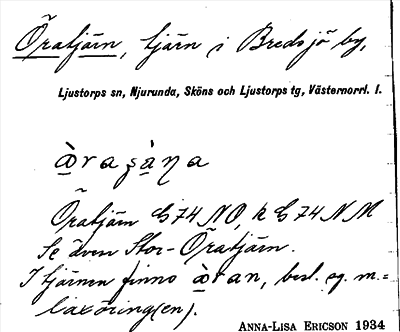 Öratjärn, tjärn i Bredsjö by,
Ljustorps sn, Njurunda, Sköns och Ljustorps tg, Västernorrl. l.
Öratjärn G 74 NO, k G 74 N M
Se även Stor-Öratjärn.
I tjärnen finno àran, best. sg. m.=
laxöring(en).
ANNA-LISA ERICSON 1934